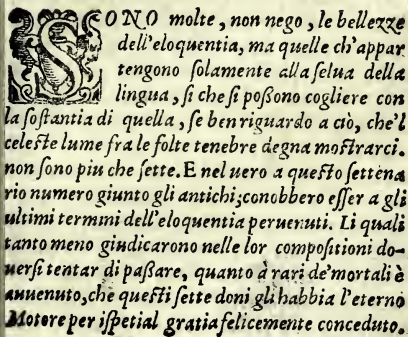 SONO molte, non nego, le bellezze
dell'eloquentia, ma quelle ch'appar
tengono ſolamente alla ſelua della
lingua, ſi che ſi poßono cogliere con
la ſoſtantia di quella, ſe ben riguardo a ciò, che'l
celeſte lume fra le folte tenebre degna moſtrarci.
non ſono piu che ſette. E nel uero a queſto ſettena
rio numero giunto gli antichi; conobbero eſſer a gli
ultimi termini dell'eloquentia peruenuti. Li quali
tanto meno giudicarono nelle lor compoſitioni do-
uerſi tentar di paßare, quanto à rari de'mortali è
auuenuto, che queſti ſette doni gli habbia l'eterno
Motore per iſpetial gratia felicemente conceduto.